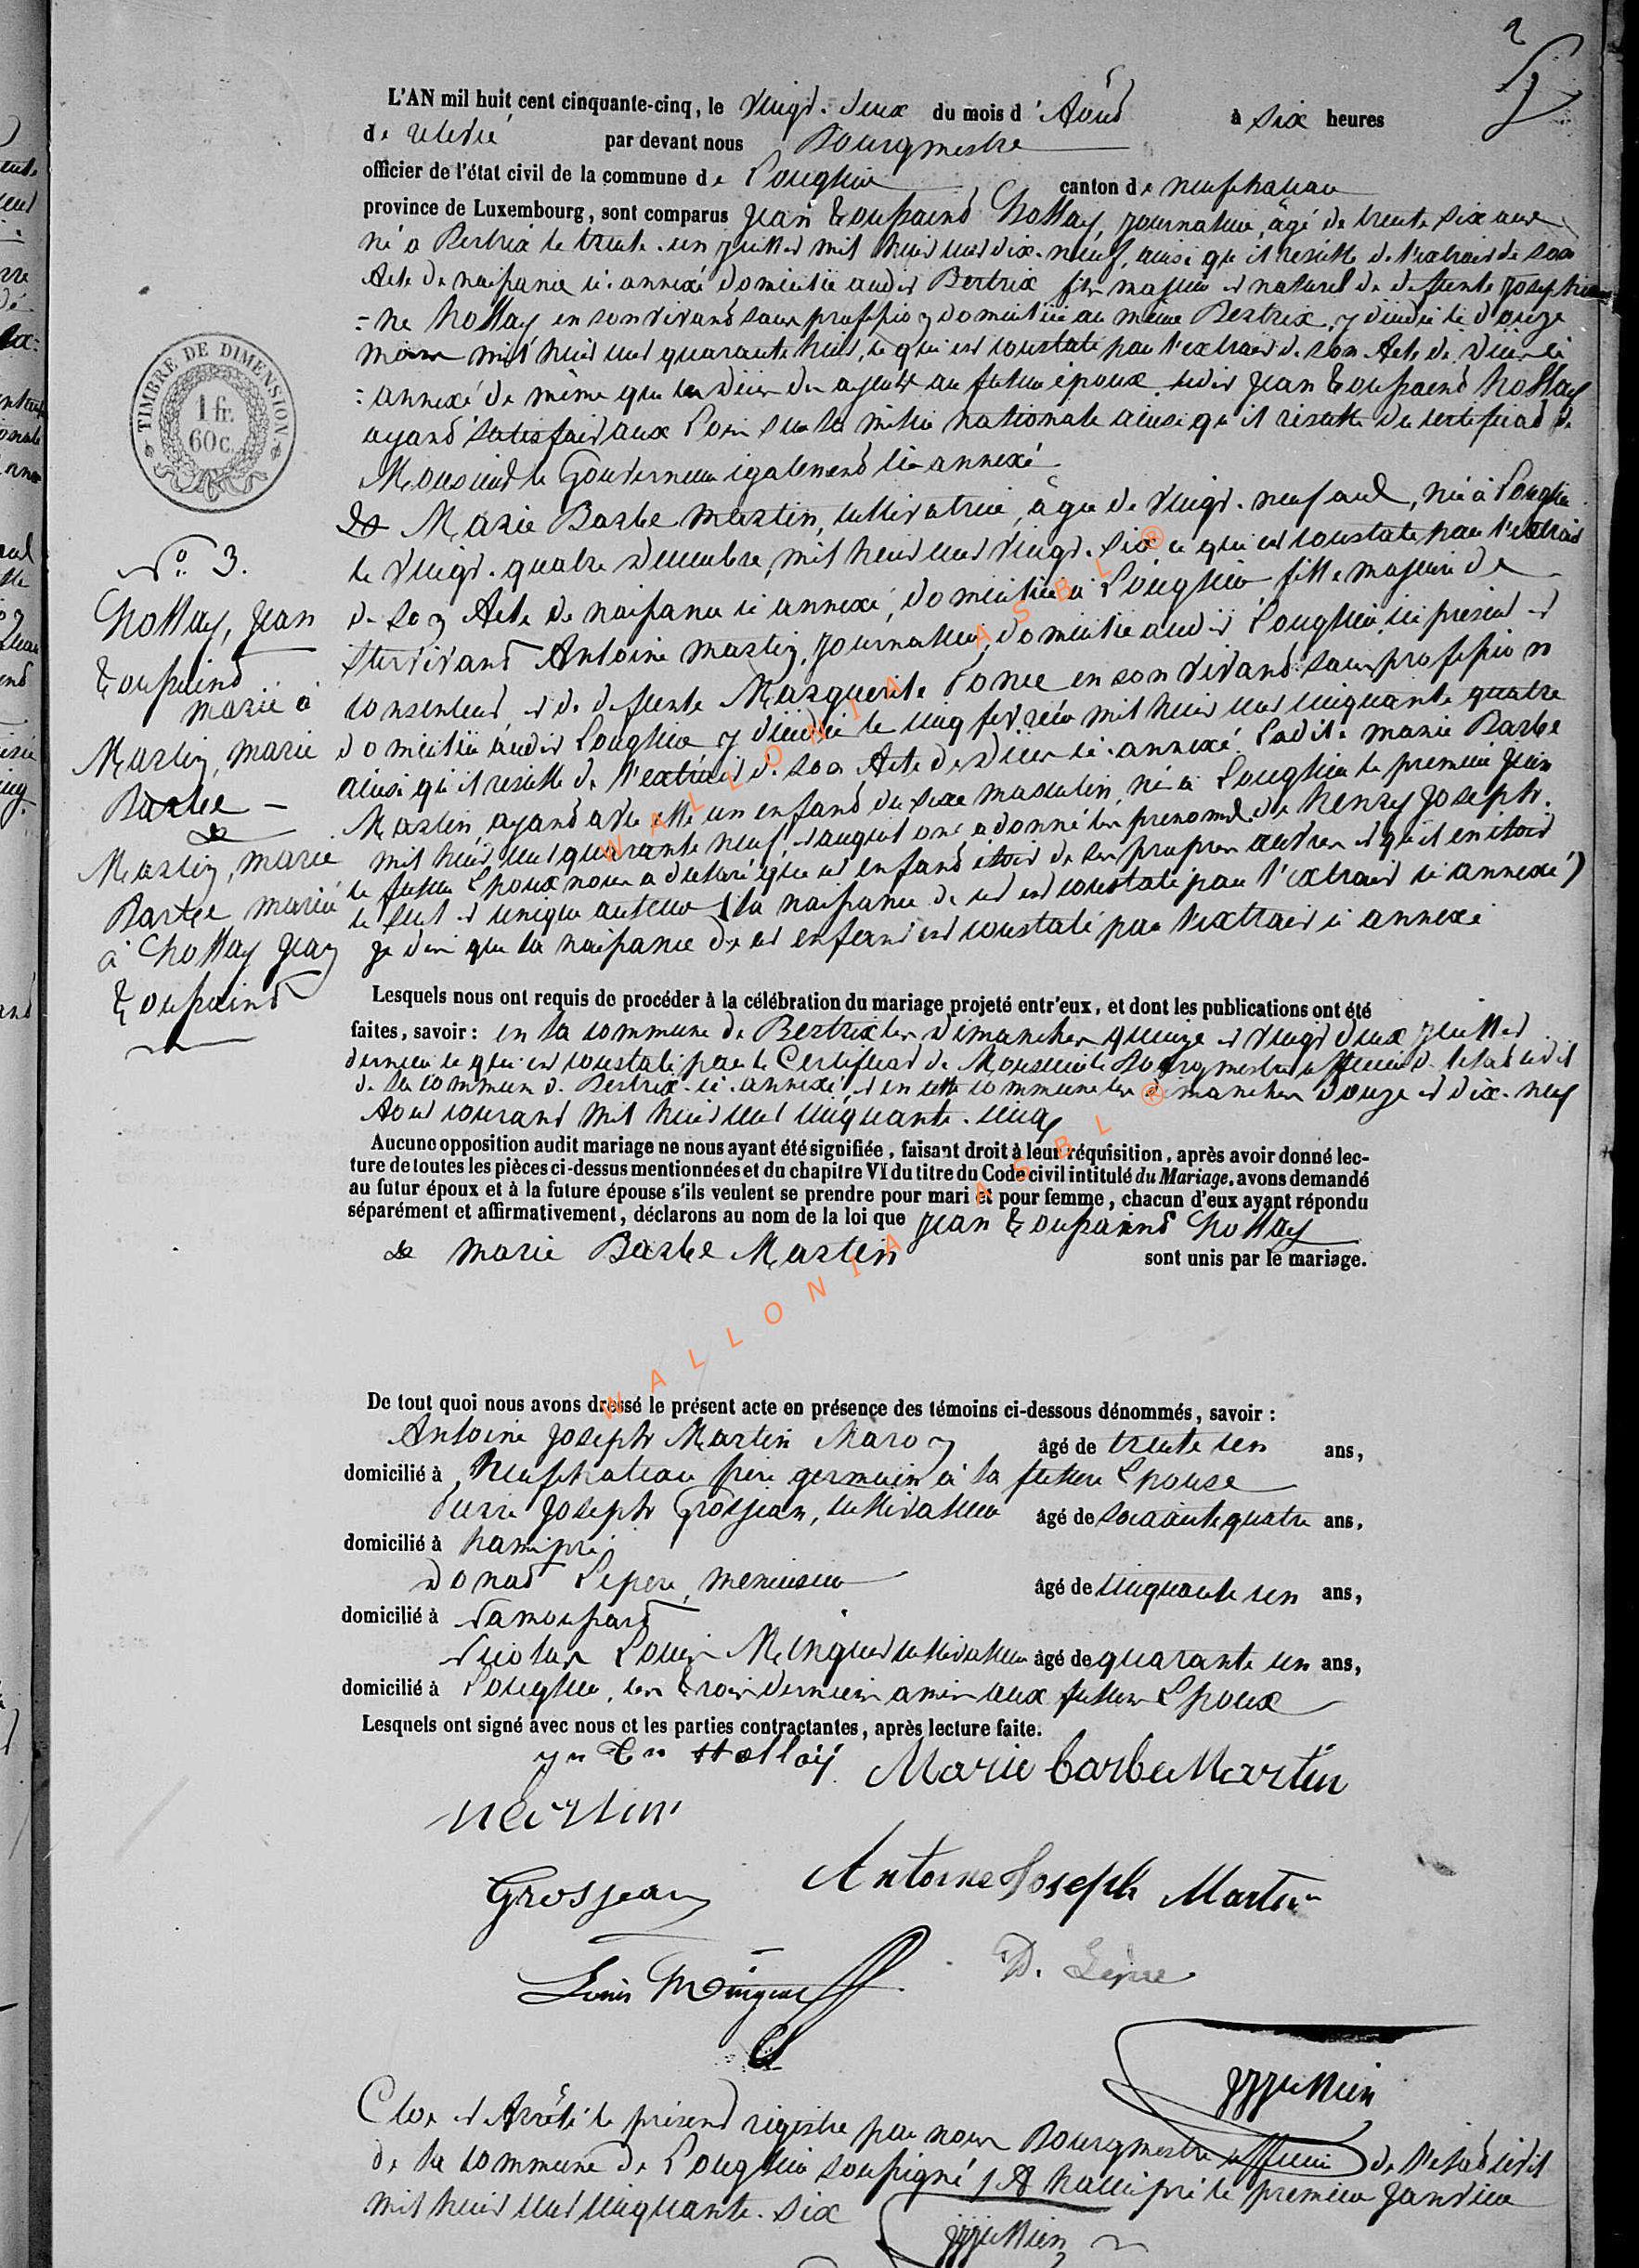 2
L'AN mil huit cent cinquante-cinq, le vingt-deux du mois d'Aout à six heures
de relevée par devant nous Bourgmestre
officier de l'état civil de la commune de Longlier canton de neufchateau
province de Luxembourg, sont comparus Jean Toussaint Hollay, journalier, âgé de trente six ans
né à Bertrix le trente-un juillet mil huit cent dix-neuf, ainsi qu'il résulte de l'extrait de son
Acte de naissance ci-annexé domicilié audit Bertrix fils majeur et naturel de deffunte Josephi
=ne hollay en son vivant sans profession domiciliée au même Bertrix, y décédée le douze
mars mil huit cent quarante huit, ce qui est constaté par l'extrait de son Acte de décès ci
=annexé de même que les décès des ayeuls au futur époux ledit Jean Toussaint hollay
ayant satisfait aux Lois sur la milice nationale ainsi qu'il résulte du certificat de
Monsieur le Gouverneur également ci-annexé
Et Marie Barbe Martin, cultivatrice, âgée de vingt-neuf ans, née à Longlier
le vingt-quatre décembre mil huit cent vingt-six ce qui est constaté par l'extrait
de son Acte de naissance ci annexé, domiciliée à Longlier fille majeure de
survivant Antoine Martin, journalier, domicilié audit Longlier, ici présent et
consentant, et de deffunte Marguerite Ponce en son vivant sans profession
domiciliée audit Longlier y décédée le cinq fevrier mil huit cent cinquante quatre
ainsi qu'il résulte de l'extrait de son Acte de décès ci-annexé. Ladite marie Barbe
Martin ayant avec elle un enfant du sexe masculin, né à Longlier le premier juin
mil huit cent quarante neuf, et auquel on a donné les prenoms de henry Joseph.
le futur Epoux nous a declaré que cet enfant étoit de ses propres œuvres et qu'il en étoit
le seul et unique auteur (la naissance de cet est constaté par l'extrait ci annexé)
je dis que la naissance de cet enfant est constaté par l'extrait ci annexé
TIMBRE DE DIMENSION
1 fr.
60c.
N° 3.
hollay, Jean
Toussaint
marié à
Martin, marie
Barbe
&
Martin, marie
Barbe mariée
à hollay Jean
Toussaint
Lesquels nous ont requis de procéder à la célébration du mariage projeté entr'eux, et dont les publications ont été
faites, savoir: en la commune de Bertrix les dimanches quinze et vingt deux juillet
dernier ce qui est constaté par le Certificat de Monsieur le Bourgmestre officier de l'état civil
de la commune de Bertrix ci-annexé et en cette commune les dimanches douze et dix-neuf
Aout courant mil huit cent cinquante-cinq
Aucune opposition audit mariage ne nous ayant été signifiée, faisant droit à leur réquisition, après avoir donné lec-
ture de toutes les pièces ci-dessus mentionnées et du chapitre VI du titre du Code civil intitulé du Mariage, avons demandé
au futur époux et à la future épouse s'ils veulent se prendre pour mari et pour femme, chacun d'eux ayant répondu
séparément et affirmativement, déclarons au nom de la loi que Jean Toussaint hollay
& marie Barbe Martin sont unis par le mariage.
De tout quoi nous avons dressé le présent acte en présence des témoins ci-dessous dénommés, savoir:
Antoine Joseph Martin âgé de trente un ans,
domicilié à Neufchateau frère germain à la future Epouse
Pierre Joseph Grosjean, cultivateur âgé de soixante quatre ans,
domicilié à hamipré
Donat Lepere, menuisier âgé de cinquante un ans,
domicilié à Namoussart
Nicolas Louis Minguet cultivateur âgé de quarante un ans,
domicilié à Longlier, les trois derniers amis aux futurs Epoux
Lesquels ont signé avec nous et les parties contractantes, après lecture faite.
Jn Tn Hollay Marie barbe Martin
Martin
Grosjean Antoine Joseph Martin
Louis Minguet D. Lepere
Clos et Arrêté le présent registre par nous Bourgmestre officier de l'état civil
de la commune de Longlier soussigné, à hamipré le premier Janvier
mil huit cent cinquante-six
WALLONIA ASBL ®
WALLONIA ASBL ®